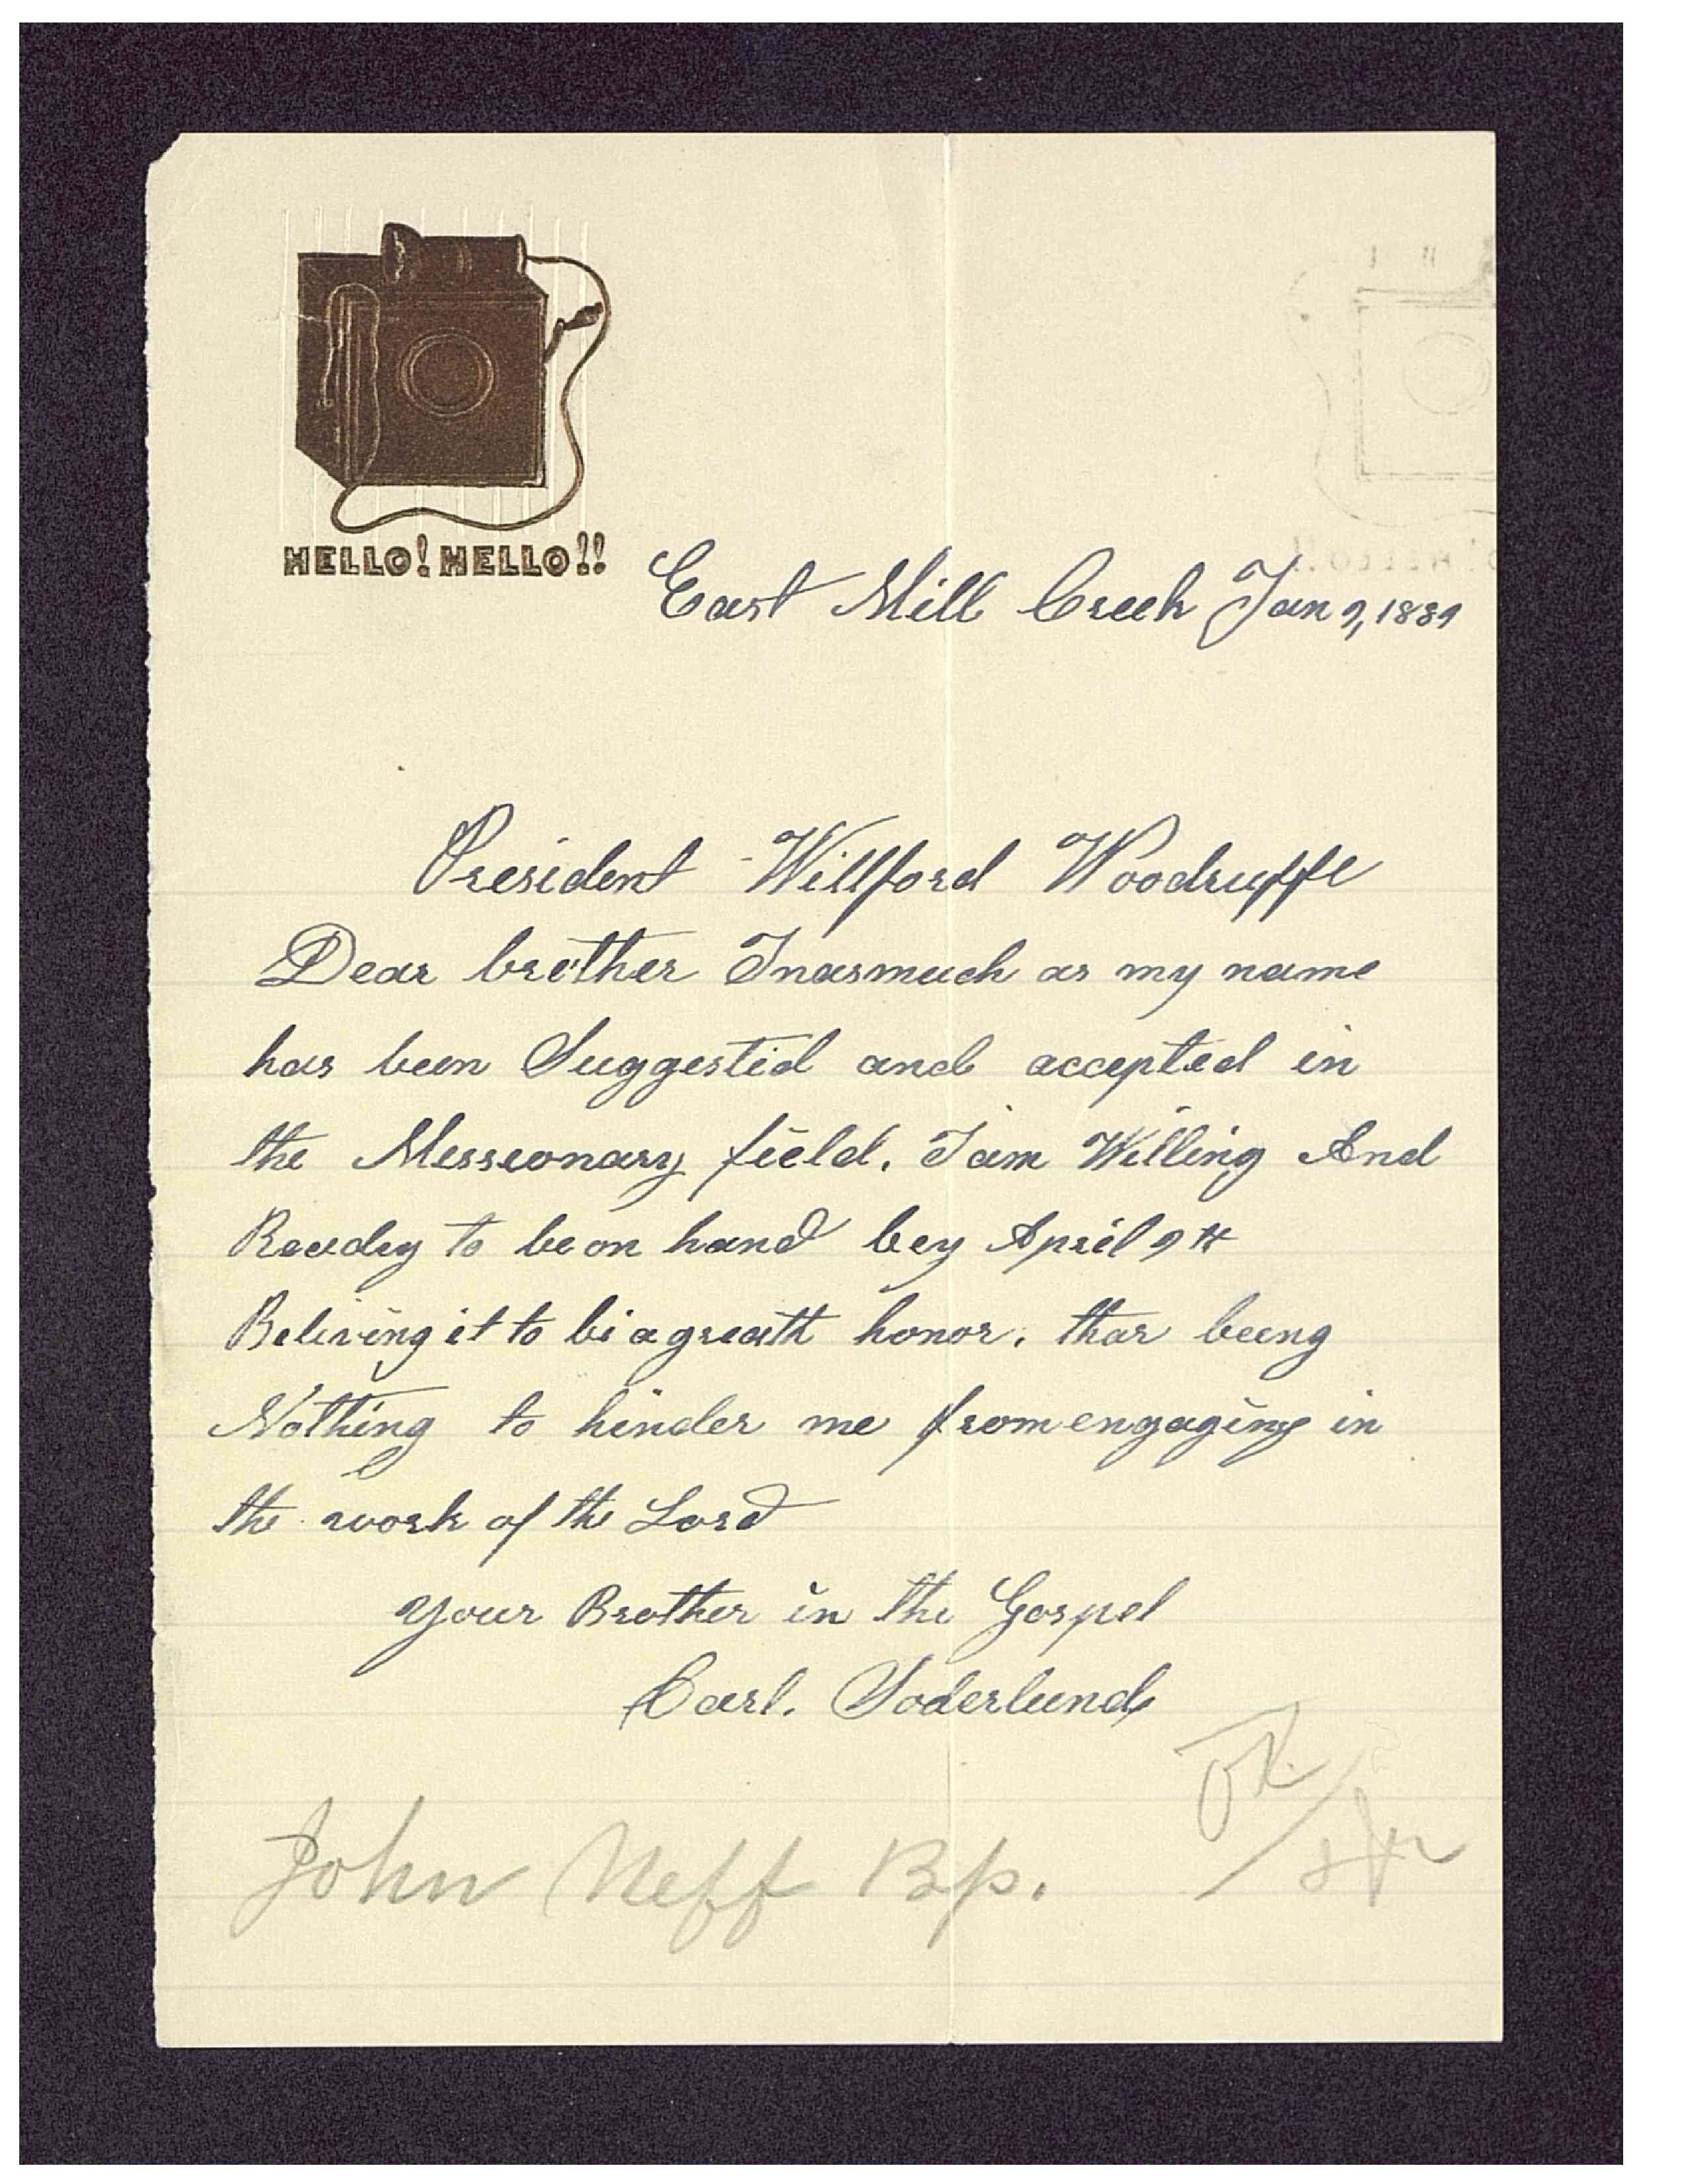 HELLO! HELLO!!
East Mill Creek Jan 9, 1889
President Willford Woodruffe
Dear brother Inasmuch as my name
has been Suggestid and accepted in
the Messionary field. I am Willing And
Ready to be on hand bey April 9th
Beliving it to bi a greatt honor. thar being
Nothing to hinder me from engaging in
the work of the Lord
your Brother in the Gospel
Carl. Soderlund
John Neff Bp.
OK